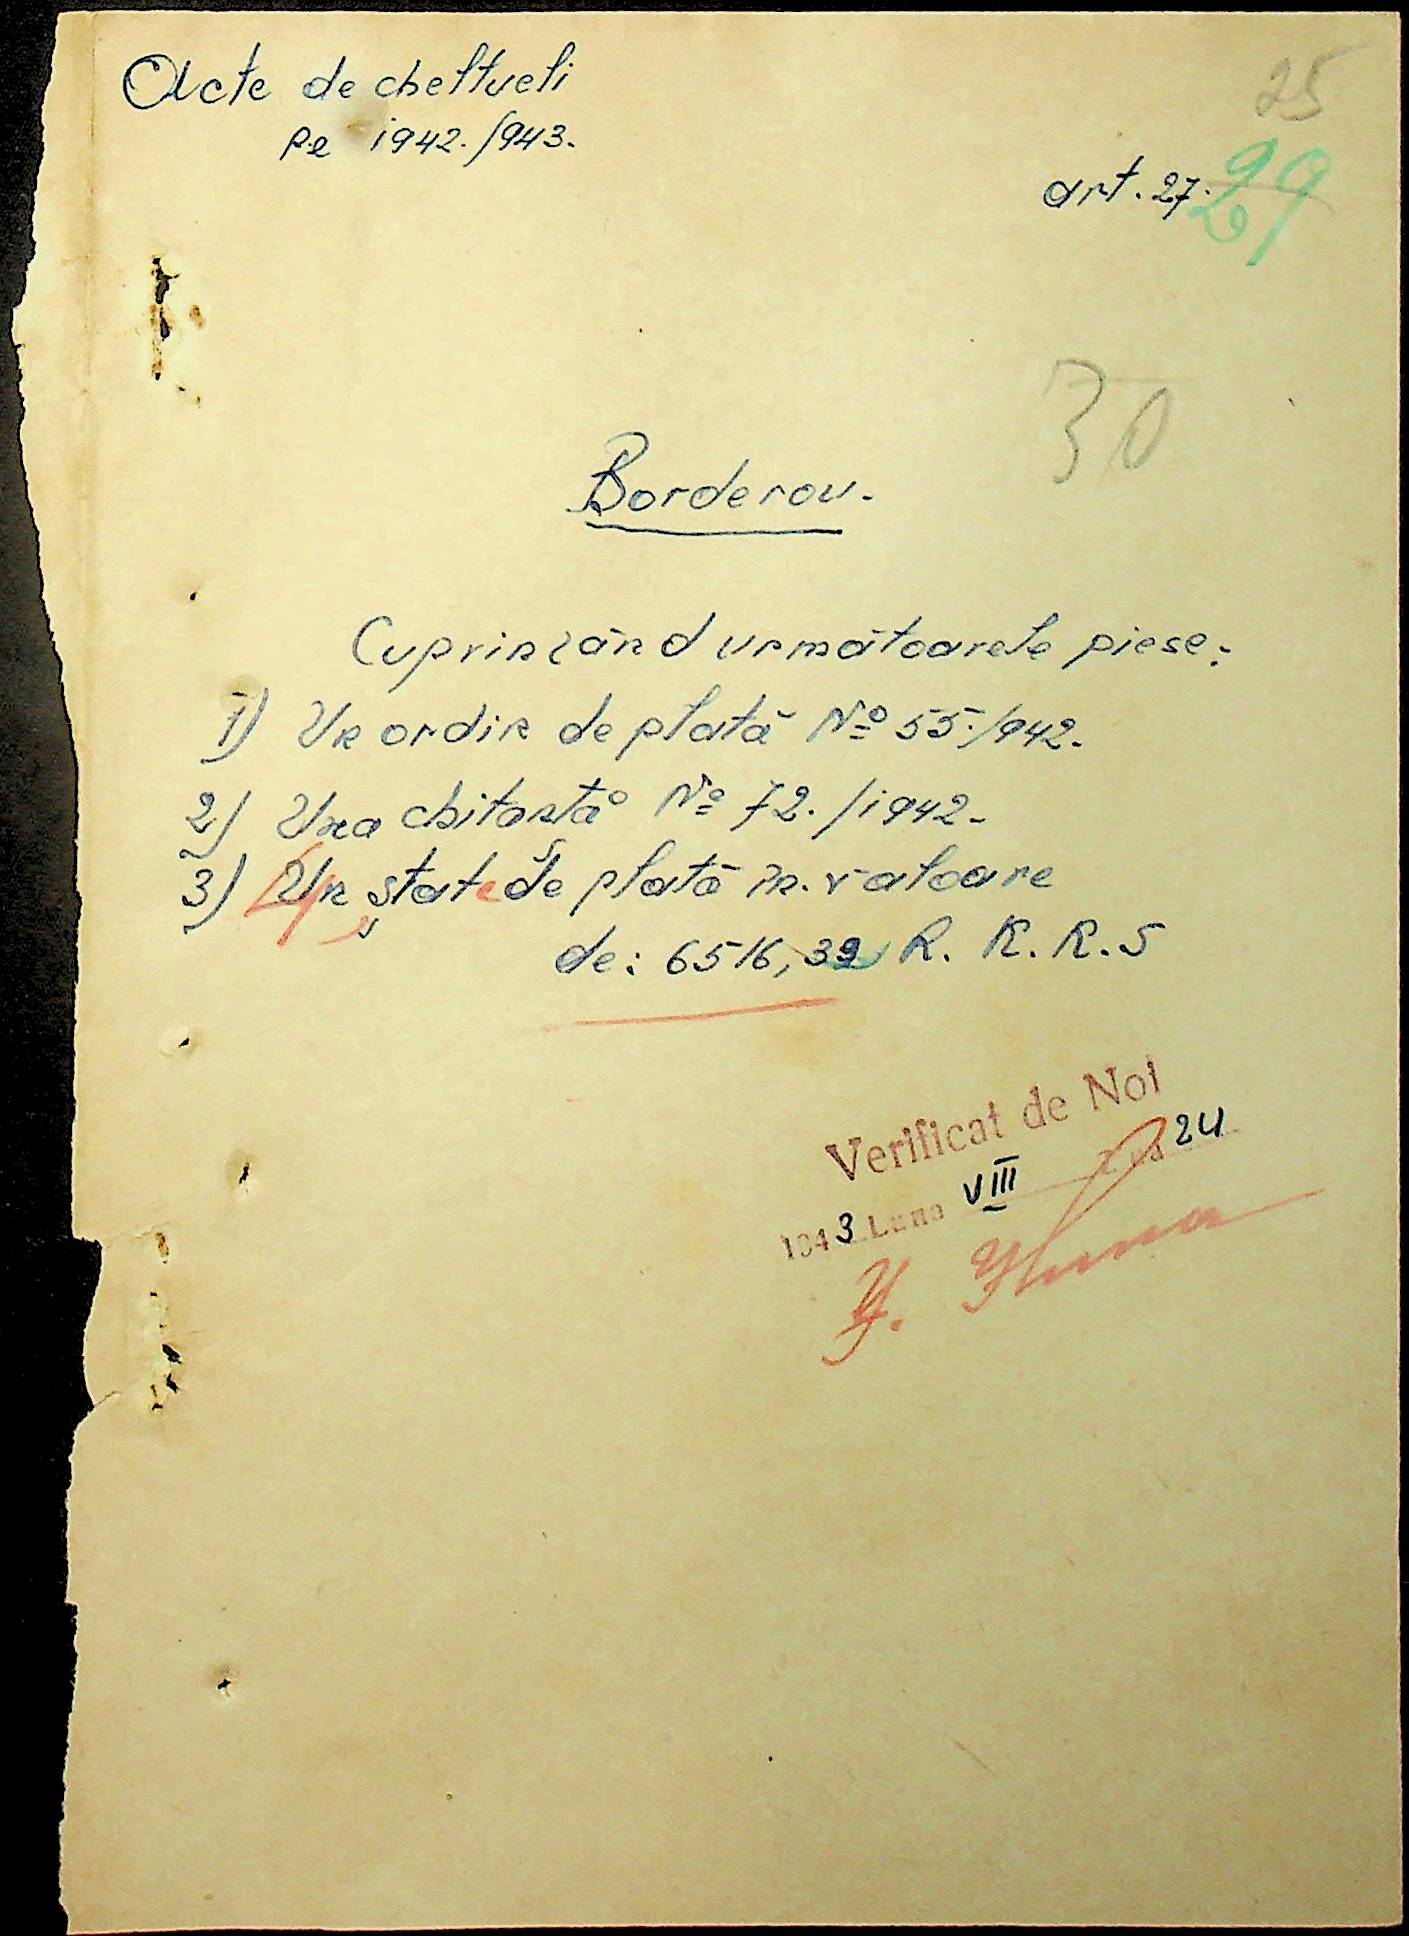 Acte de cheltueli
pe 1942./943.
25
art. 27.
29
30
Borderou.
Cuprinzând următoarele piese:
1) Un ordin de plată No 55./942.
2) Una chitanță No 72./1942.
3) 4 state de plată în valoare
de: 6516,32 R. K. K. S
Verificat de Noi
1943 Luna VIII Ziua 24